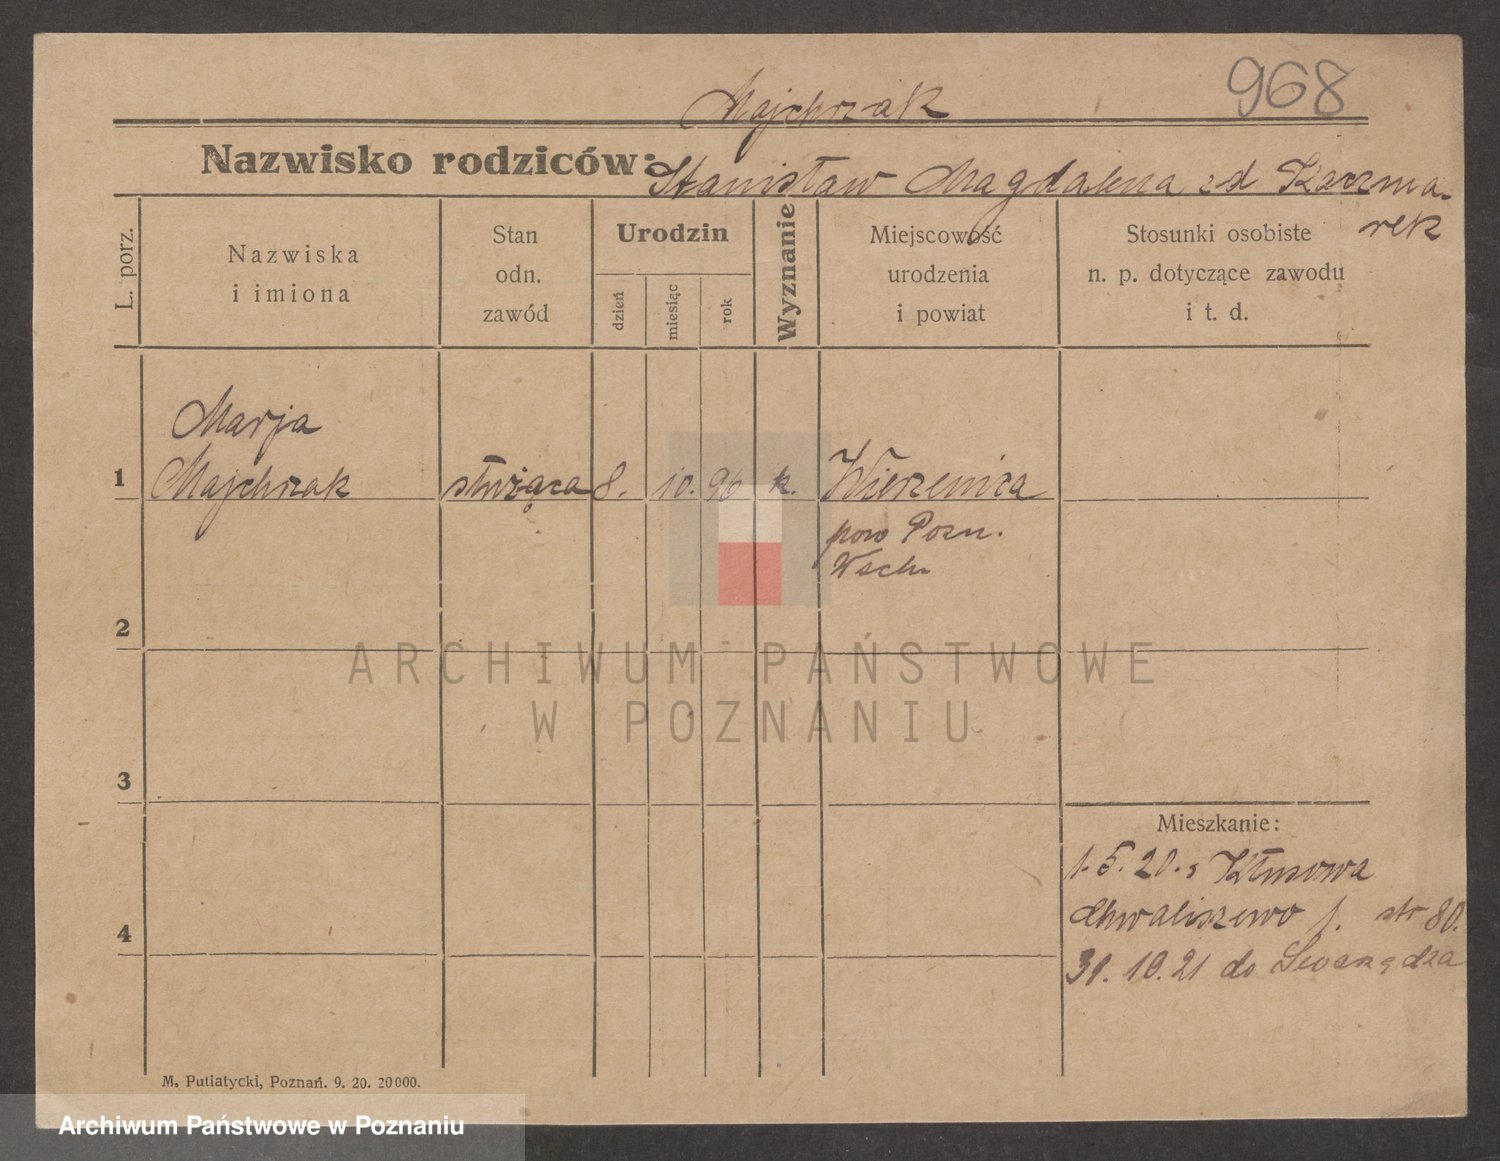 968
Majchrzak
Nazwisko rodziców: Stanisław Magdalena zd Kaczma-
rek
L. porz.
Nazwiska
i imiona
Stan
odn.
zawód
Urodzin
dzień
miesiąc
rok
Wyznanie
Miejscowość
urodzenia
i powiat
Stosunki osobiste
n. p. dotyczące zawodu
i t. d.
Marja
1 Majchrzak służąca 8. 10. 96 k. Wierzenica
pow Pozn.
Wsch
2
3
4
Mieszkanie:
1.5.20.
Chwaliszewo 1. str 80.
31.10.21 do
M. Putiatycki, Poznań. 9. 20. 20000.
ARCHIWUM PAŃSTWOWE
W POZNANIU
Archiwum Państwowe w Poznaniu